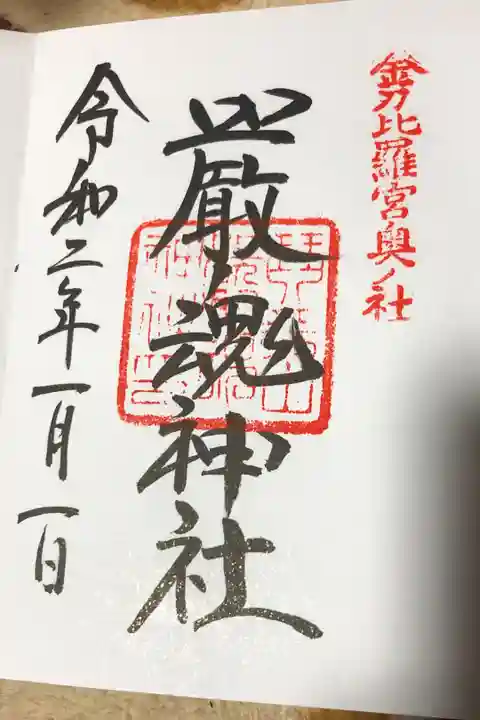 金刀比羅宮奥ノ社
厳魂神社
令和二年一月一日